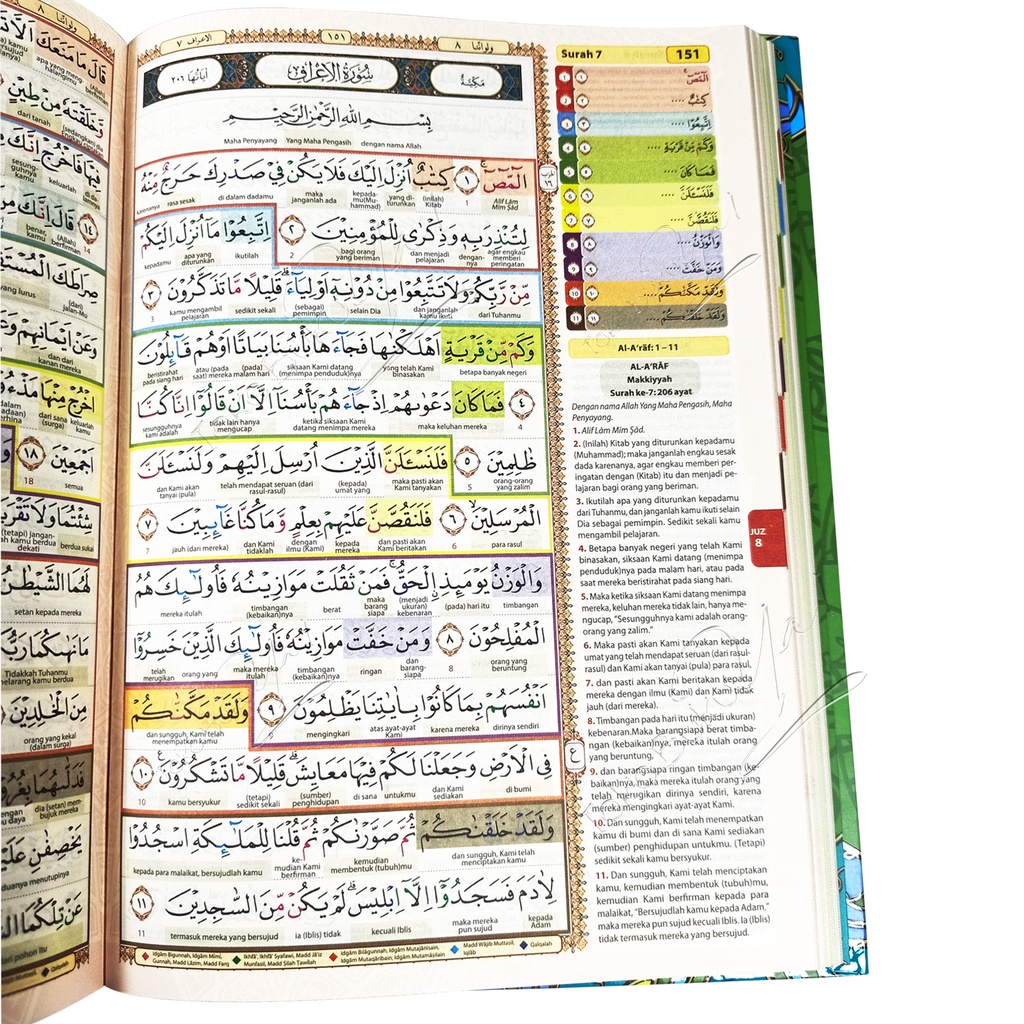 ولواننا ٨
قال ما منعك
apa yang menghalangimu
وخلقته من طين
dari tanah
فيها فاخرج انك
keluarlah
sesungguhnya kamu
١٤ قال انك
(Allah) berfirman
benar, kamu
14
صراطك
(dari) jalan-Mu
yang lurus
وعن ايمانهم
dan dari kanan mereka
اخرج منها
keluarlah kamu
dari sana (surga)
اجمعين ١٨
semua
18
شئتما ولا تقربا
berdua sukai
(tetapi) janganlah kamu berdua dekati
لهما الشيطن
setan kepada mereka
مانهىكما
Tidakkah Tuhanmu melarang kamu berdua
من الخلدين
orang yang kekal (dalam surga)
فدلىهما بغرور
dia (setan) membujuk mereka
يخصفن
عن تلكما
الاعراف ٧
١٥١
ولواننا ٨
مكية
سورة الاعراف
اياتها ٢٠٦
بسم الله الرحمن الرحيم
dengan nama Allah Yang Maha Pengasih Maha Penyayang
الۤمّۤصۤ ۚ ١ كِتٰبٌ اُنْزِلَ اِلَيْكَ فَلَا يَكُنْ فِيْ صَدْرِكَ حَرَجٌ مِّنْهُ
Alif Lām Mīm Ṣād 1 (inilah) Kitab yang diturunkan kepadamu(Muhammad) maka janganlah ada di dalam dadamu rasa sesak karenanya
لِتُنْذِرَ بِهٖ وَذِكْرٰى لِلْمُؤْمِنِيْنَ ٢ اِتَّبِعُوْا مَآ اُنْزِلَ اِلَيْكُمْ
agar engkau memberi peringatan dengannya dan menjadi pelajaran bagi orang yang beriman 2 ikutilah apa yang diturunkan kepadamu
مِّنْ رَّبِّكُمْ وَلَا تَتَّبِعُوْا مِنْ دُوْنِهٖٓ اَوْلِيَاۤءَۗ قَلِيْلًا مَّا تَذَكَّرُوْنَ ٣
dari Tuhanmu dan janganlah kamu ikuti selain Dia (sebagai) pemimpin sedikit sekali kamu mengambil pelajaran 3
وَكَمْ مِّنْ قَرْيَةٍ اَهْلَكْنٰهَا فَجَاۤءَهَا بَأْسُنَا بَيَاتًا اَوْ هُمْ قَاۤىِٕلُوْنَ
betapa banyak negeri yang telah Kami binasakan siksaan Kami datang (menimpa penduduk)nya (pada) malam hari atau (pada) saat mereka beristirahat pada siang hari
٤ فَمَا كَانَ دَعْوٰىهُمْ اِذْ جَاۤءَهُمْ بَأْسُنَآ اِلَّآ اَنْ قَالُوْٓا اِنَّا كُنَّا
4 maka keluhan mereka ketika siksaan Kami datang menimpa mereka tidak lain hanya mengucap sesungguhnya kami adalah
ظٰلِمِيْنَ ٥ فَلَنَسْـَٔلَنَّ الَّذِيْنَ اُرْسِلَ اِلَيْهِمْ وَلَنَسْـَٔلَنَّ
orang-orang yang zalim 5 maka pasti akan Kami tanyakan (kepada) umat yang telah mendapat seruan (dari rasul-rasul) dan Kami akan tanyai (pula)
الْمُرْسَلِيْنَۙ ٦ فَلَنَقُصَّنَّ عَلَيْهِمْ بِعِلْمٍ وَّمَا كُنَّا غَاۤىِٕبِيْنَ ٧
para rasul 6 dan pasti akan Kami beritakan kepada mereka dengan ilmu (Kami) dan Kami tidaklah jauh (dari mereka) 7
وَالْوَزْنُ يَوْمَىِٕذِ ِۨالْحَقُّۚ فَمَنْ ثَقُلَتْ مَوَازِيْنُهٗ فَاُولٰۤىِٕكَ هُمُ
timbangan (pada) hari itu (menjadi ukuran) kebenaran maka barang siapa berat timbangan (kebaikan)nya mereka itulah
الْمُفْلِحُوْنَ ٨ وَمَنْ خَفَّتْ مَوَازِيْنُهٗ فَاُولٰۤىِٕكَ الَّذِيْنَ خَسِرُوْٓا
orang yang beruntung 8 dan barangsiapa ringan timbangan (kebaikan)nya maka mereka itulah orang yang telah merugikan
اَنْفُسَهُمْ بِمَا كَانُوْا بِاٰيٰتِنَا يَظْلِمُوْنَ ٩ وَلَقَدْ مَكَّنّٰكُمْ
dirinya sendiri karena mereka atas ayat-ayat Kami mengingkari 9 dan sungguh, Kami telah menempatkan kamu
فِى الْاَرْضِ وَجَعَلْنَا لَكُمْ فِيْهَا مَعَايِشَۗ قَلِيْلًا مَّا تَشْكُرُوْنَ ١٠
di bumi dan Kami sediakan untukmu di sana (sumber) penghidupan (tetapi) sedikit sekali kamu bersyukur 10
وَلَقَدْ خَلَقْنٰكُمْ ثُمَّ صَوَّرْنٰكُمْ ثُمَّ قُلْنَا لِلْمَلٰۤىِٕكَةِ اسْجُدُوْا
dan sungguh, Kami telah menciptakan kamu kemudian membentuk (tubuh)mu kemudian Kami berfirman kepada para malaikat, bersujudlah kamu
لِاٰدَمَ فَسَجَدُوْٓا اِلَّآ اِبْلِيْسَۗ لَمْ يَكُنْ مِّنَ السّٰجِدِيْنَ ١١
kepada Adam maka mereka pun sujud kecuali Iblis ia (Iblis) tidak termasuk mereka yang bersujud 11
Idgām Bigunnah, Idgām Mimi, Gunnah, Madd Lāzim, Madd Farq
Ikhfā', Ikhfā' Syafawi, Madd Jā'iz Munfasil, Madd Ṣilah Ṭawīlah
Idgām Bilāgunnah, Idgām Mutajānisain, Idgām Mutaqāribain, Idgām Mutamāṡilain
Madd Wājib Muttasil, Iqlāb
Qalqalah
الحزب ١٦
ع
Surah 7 151
1 ١ الۤمّۤصۤ
2 ٢ كِتٰبٌ ....
3 ٣ اِتَّبِعُوْا ....
4 ٤ وَكَمْ مِّنْ قَرْيَةٍ ....
5 ٥ فَمَا كَانَ ....
6 ٦ فَلَنَسْـَٔلَنَّ ....
7 ٧ فَلَنَقُصَّنَّ ....
8 ٨ وَالْوَزْنُ ....
9 ٩ وَمَنْ خَفَّتْ ....
10 ١٠ وَلَقَدْ مَكَّنّٰكُمْ ....
11 ١١ وَلَقَدْ خَلَقْنٰكُمْ ....
Al-A'rāf: 1 – 11
AL-A'RĀF
Makkiyyah
Surah ke-7: 206 ayat
Dengan nama Allah Yang Maha Pengasih, Maha
Penyayang.
1. Alif Lām Mīm Ṣād.
2. (Inilah) Kitab yang diturunkan kepadamu
(Muhammad); maka janganlah engkau sesak
dada karenanya, agar engkau memberi peri-
ngatan dengan (Kitab) itu dan menjadi pe-
lajaran bagi orang yang beriman.
3. Ikutilah apa yang diturunkan kepadamu
dari Tuhanmu, dan janganlah kamu ikuti selain
Dia sebagai pemimpin. Sedikit sekali kamu
mengambil pelajaran.
4. Betapa banyak negeri yang telah Kami
binasakan, siksaan Kami datang (menimpa
penduduk)nya pada malam hari, atau pada
saat mereka beristirahat pada siang hari.
5. Maka ketika siksaan Kami datang menimpa
mereka, keluhan mereka tidak lain, hanya me-
ngucap, "Sesungguhnya kami adalah orang-
orang yang zalim."
6. Maka pasti akan Kami tanyakan kepada
umat yang telah mendapat seruan (dari rasul-
rasul) dan Kami akan tanyai (pula) para rasul,
7. dan pasti akan Kami beritakan kepada
mereka dengan ilmu (Kami) dan Kami tidak
jauh (dari mereka).
8. Timbangan pada hari itu (menjadi ukuran)
kebenaran. Maka barangsiapa berat timba-
ngan (kebaikan)nya, mereka itulah orang
yang beruntung,
9. dan barangsiapa ringan timbangan (ke-
baikan)nya, maka mereka itulah orang yang
telah merugikan dirinya sendiri, karena
mereka mengingkari ayat-ayat Kami.
10. Dan sungguh, Kami telah menempatkan
kamu di bumi dan di sana Kami sediakan
(sumber) penghidupan untukmu. (Tetapi)
sedikit sekali kamu bersyukur.
11. Dan sungguh, Kami telah menciptakan
kamu, kemudian membentuk (tubuh)mu,
kemudian Kami berfirman kepada para
malaikat, "Bersujudlah kamu kepada Adam,"
maka mereka pun sujud kecuali Iblis. Ia (Iblis)
tidak termasuk mereka yang bersujud.
JUZ
8